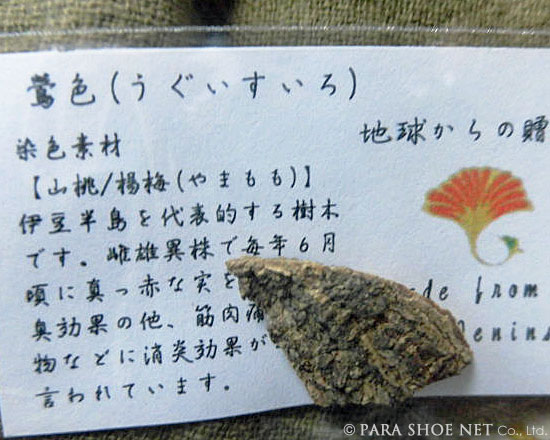 鶯色(うぐいすいろ)
地球からの贈
染色素材
【山桃/楊梅(やまもも)】
伊豆半島を代表的する樹木
です。雌雄異株で毎年6月
頃に真っ赤な実を
臭効果の他、筋肉痛
物などに消炎効果が
言われています。
from
© PARA SHOE NET Co., Ltd.